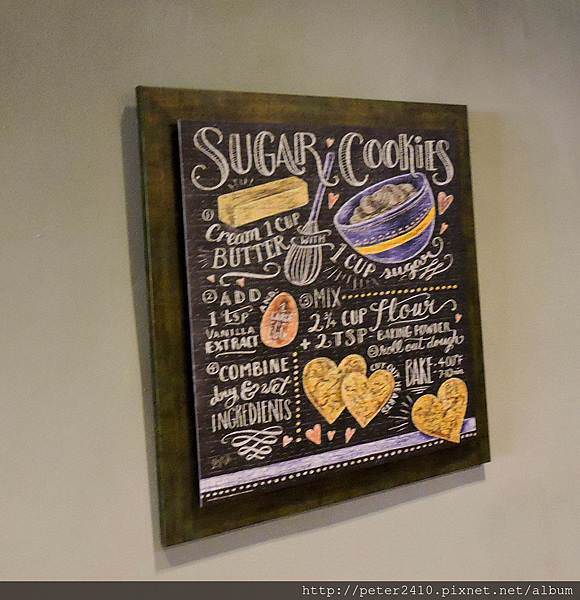 SUGAR COOKIES
① Cream 1 CUP
BUTTER WITH
1 CUP sugar
② ADD
1 tsp
VANILLA
EXTRACT
AND
1
LARGE
EGG
③ MIX
2 3/4 CUP flour
+ 2 TSP BAKING POWDER
④ COMBINE
dry & wet
INGREDIENTS
⑤ roll out dough
CUT OUT HEARTS
BAKE 400°F
7-10 min
http://peter2410.pixnet.net/album